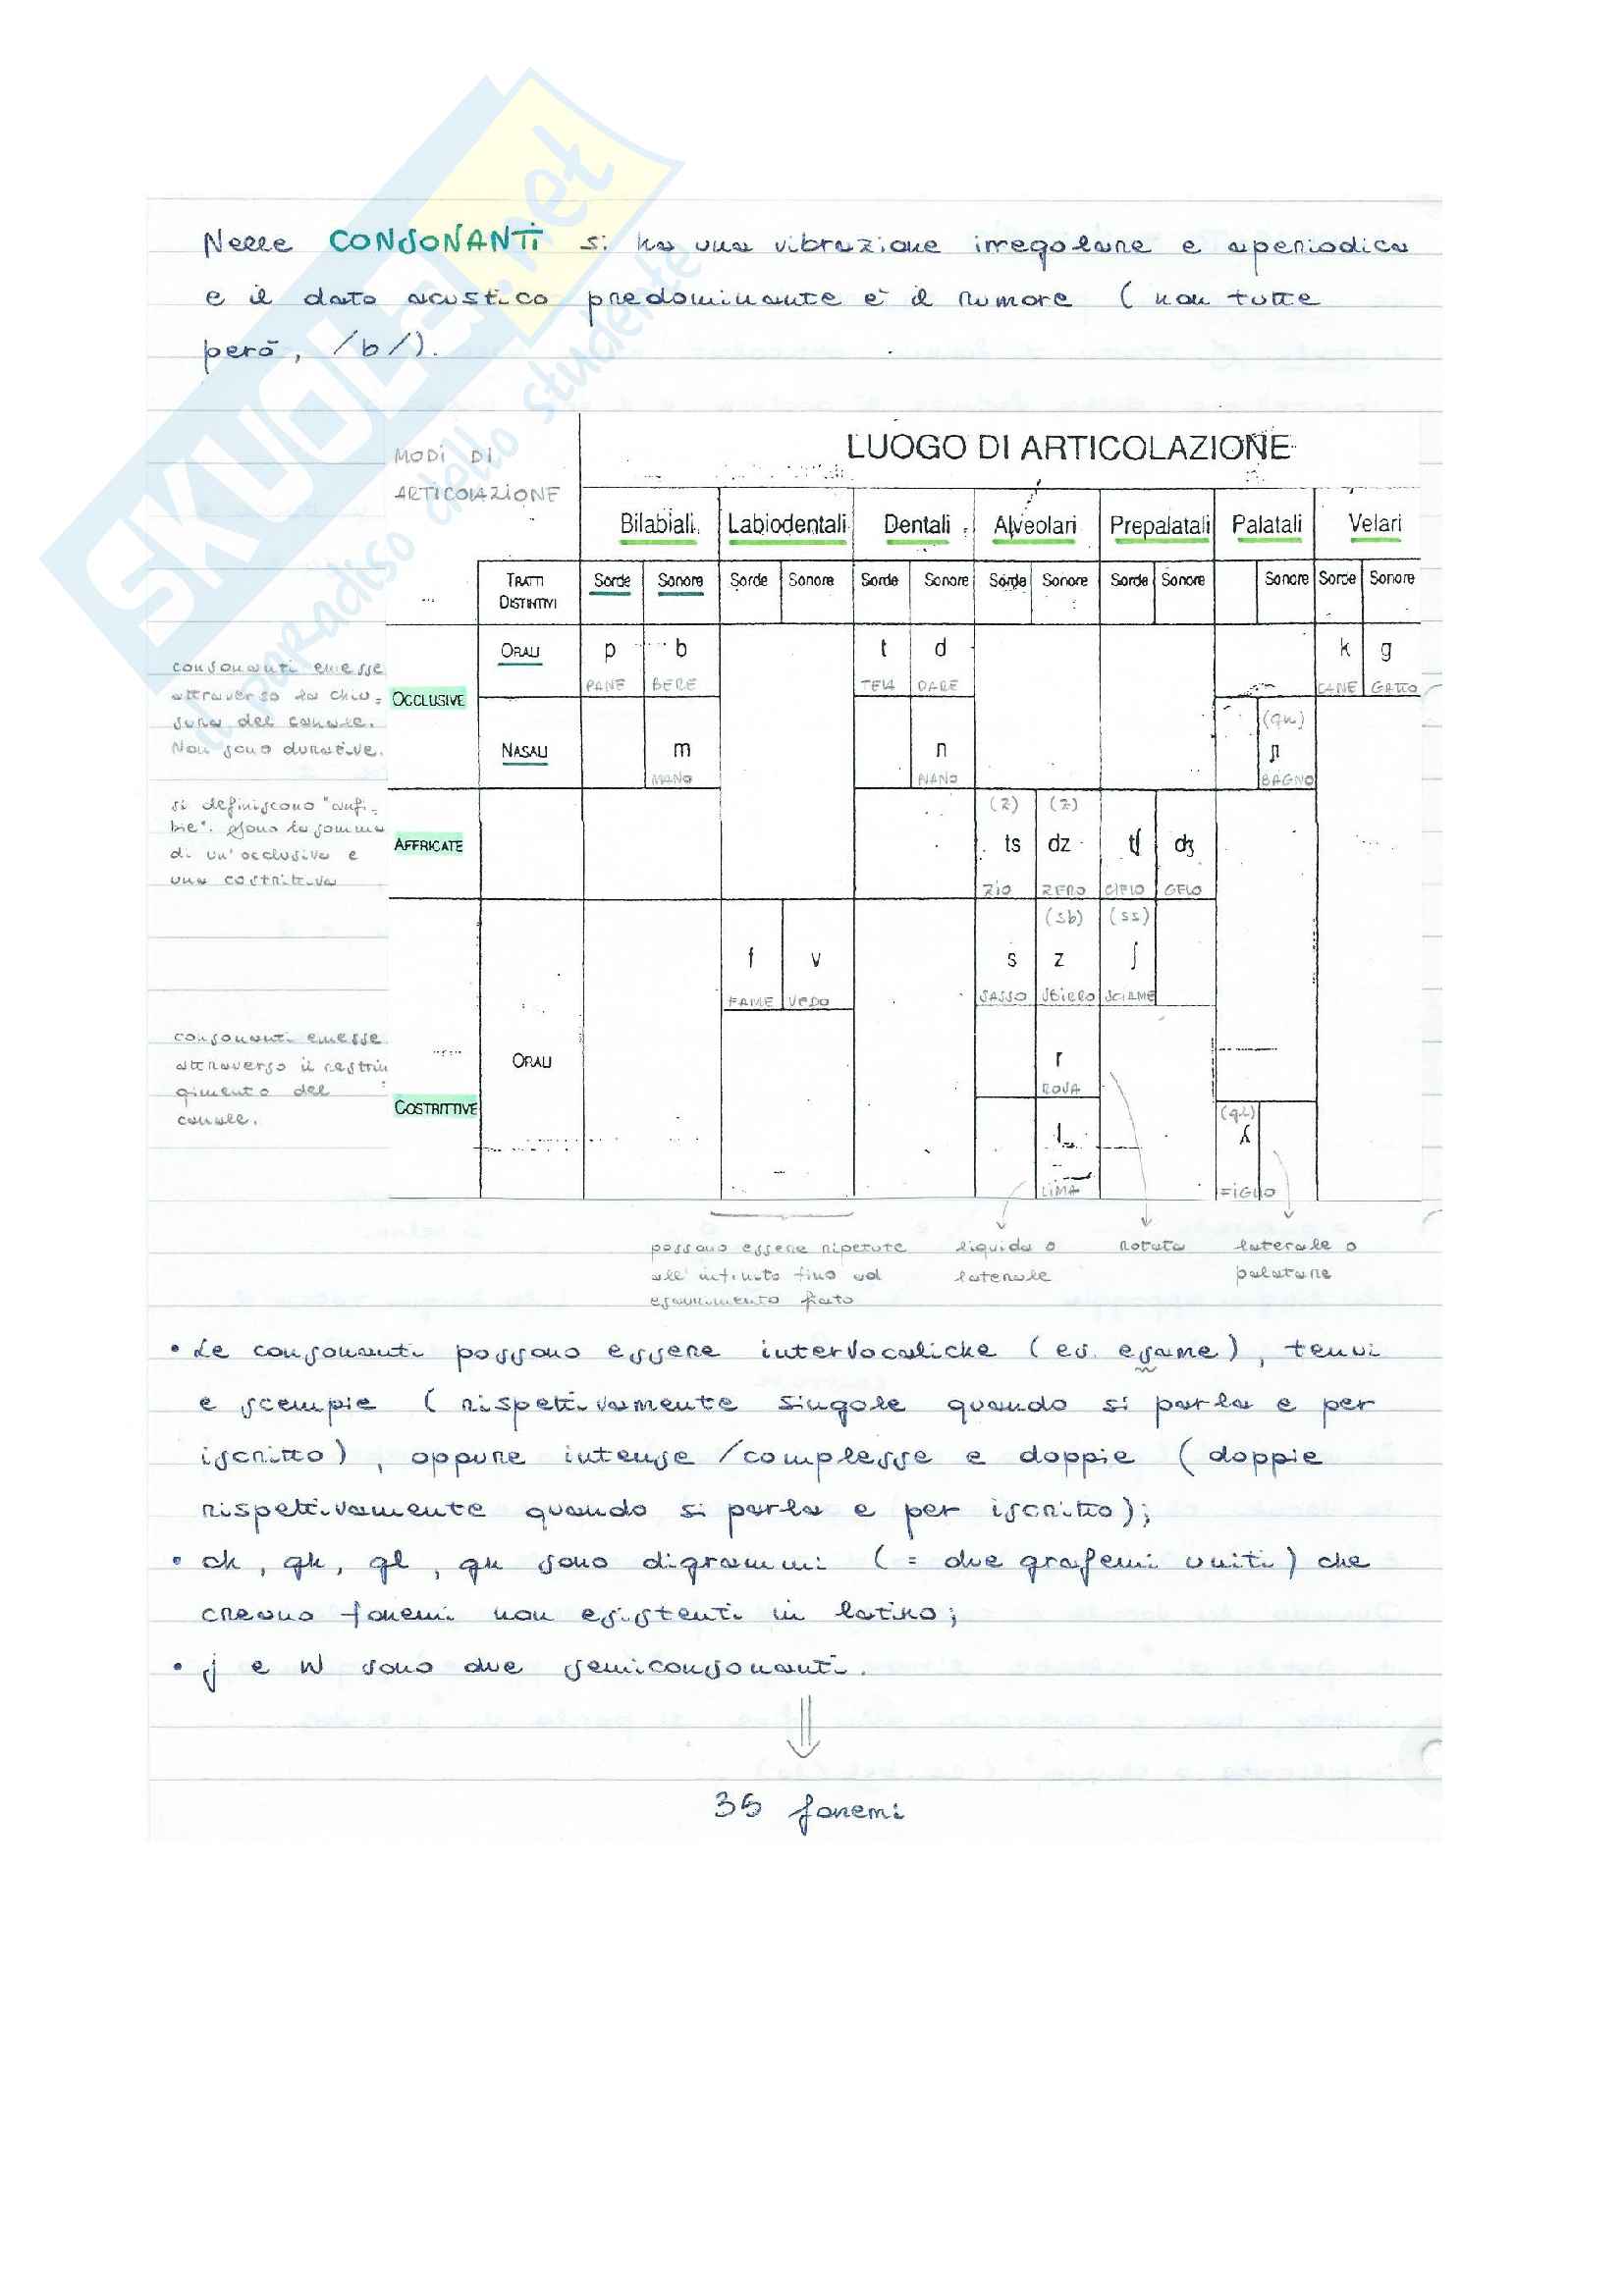 Nelle CONSONANTI si ha una vibrazione irregolare e aperiodica
e il dato acustico predominante è il rumore (non tutte
però, /b/).
SKUOLA.net
il paradiso dello studente
MODI DI
ARTICOLAZIONE
LUOGO DI ARTICOLAZIONE
Bilabiali Labiodentali Dentali Alveolari Prepalatali Palatali Velari
TRATTI
DISTINTIVI
Sorde Sonore Sorde Sonore Sorde Sonore Sorde Sonore Sorde Sonore Sonore Sorde Sonore
consonanti emesse
attraverso la chiu=
sura del canale.
Non sono durative.
OCCLUSIVE
ORALI p b t d k g
PANE BERE TELA DARE CANE GATTO
(gn)
NASALI m n ɲ
MANO NANO BAGNO
si definiscono "anfi=
bie". Sono la somma
di un'occlusiva e
una costrittiva
(z) (z)
AFFRICATE ts dz tʃ dʒ
ZIO ZERO CIELO GELO
(sb) (ss)
f v s z ʃ
FAME VEDO SASSO SBIRRO SCIAME
consonanti emesse
attraverso il restrin
gimento del
canale.
ORALI r
ROSA
COSTRITTIVE
(gl)
l ʎ
LIMA FIGLIO
possono essere ripetute
all'infinito fino ad
esaurimento fiato
liquida o
laterale
rotata
laterale o
palatare
• Le consonanti possono essere intervocaliche (es. esame), tenui
e scempie (rispettivamente singole quando si parla e per
iscritto), oppure intense/complesse e doppie (doppie
rispettivamente quando si parla e per iscritto);
• ch, gh, gl, gn sono digrammi (= due grafemi uniti) che
creano fonemi non esistenti in latino;
• j e w sono due semiconsonanti.
35 fonemi